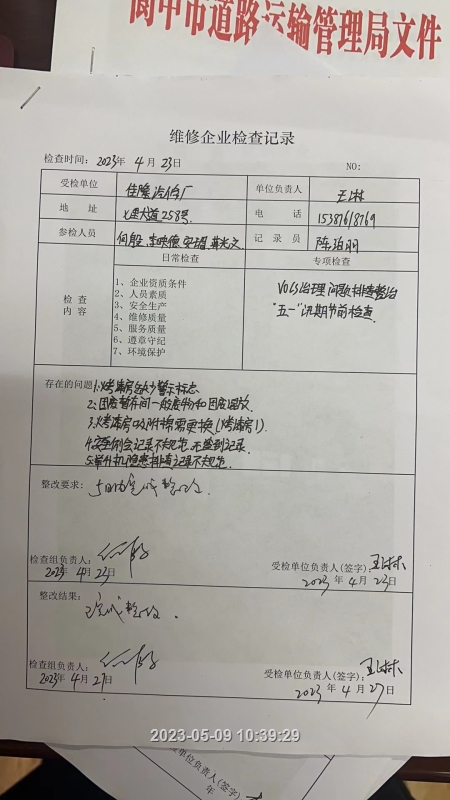 阆中市道路运输管理局文件
维修企业检查记录
检查时间：2023年 4月23日 NO:
受检单位 佳隆汽修厂 单位负责人 王林
地 址 大道258号 电 话 15387618769
参检人员 记录员
日常检查 专项检查
检查内容
1、企业资质条件
2、人员素质
3、安全生产
4、维修质量
5、服务质量
6、遵章守纪
7、环境保护
VOCs治理问题排查整治
"五一"汛期节前检查
存在的问题 1.烤漆房缺少警示标志
2.固废暂存间一般废物和固废混放.
3.烤漆房吸附棉需更换(烤漆房1).
4.安全例会记录不规范,无签到记录.
5.举升机隐患排查记录不规范.
整改要求: 5日内完成整改.
检查组负责人:
2023年4月23日
受检单位负责人(签字): 王林
2023年4月23日
整改结果:
已完成整改.
检查组负责人:
2023年4月27日
受检单位负责人(签字): 王林
2023年4月27日
2023-05-09 10:39:29
单位负责人(签字)
年